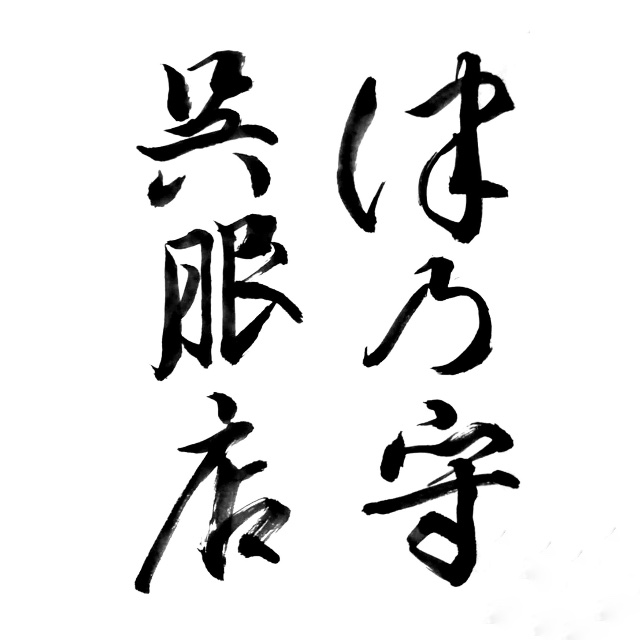 津乃守
呉服店